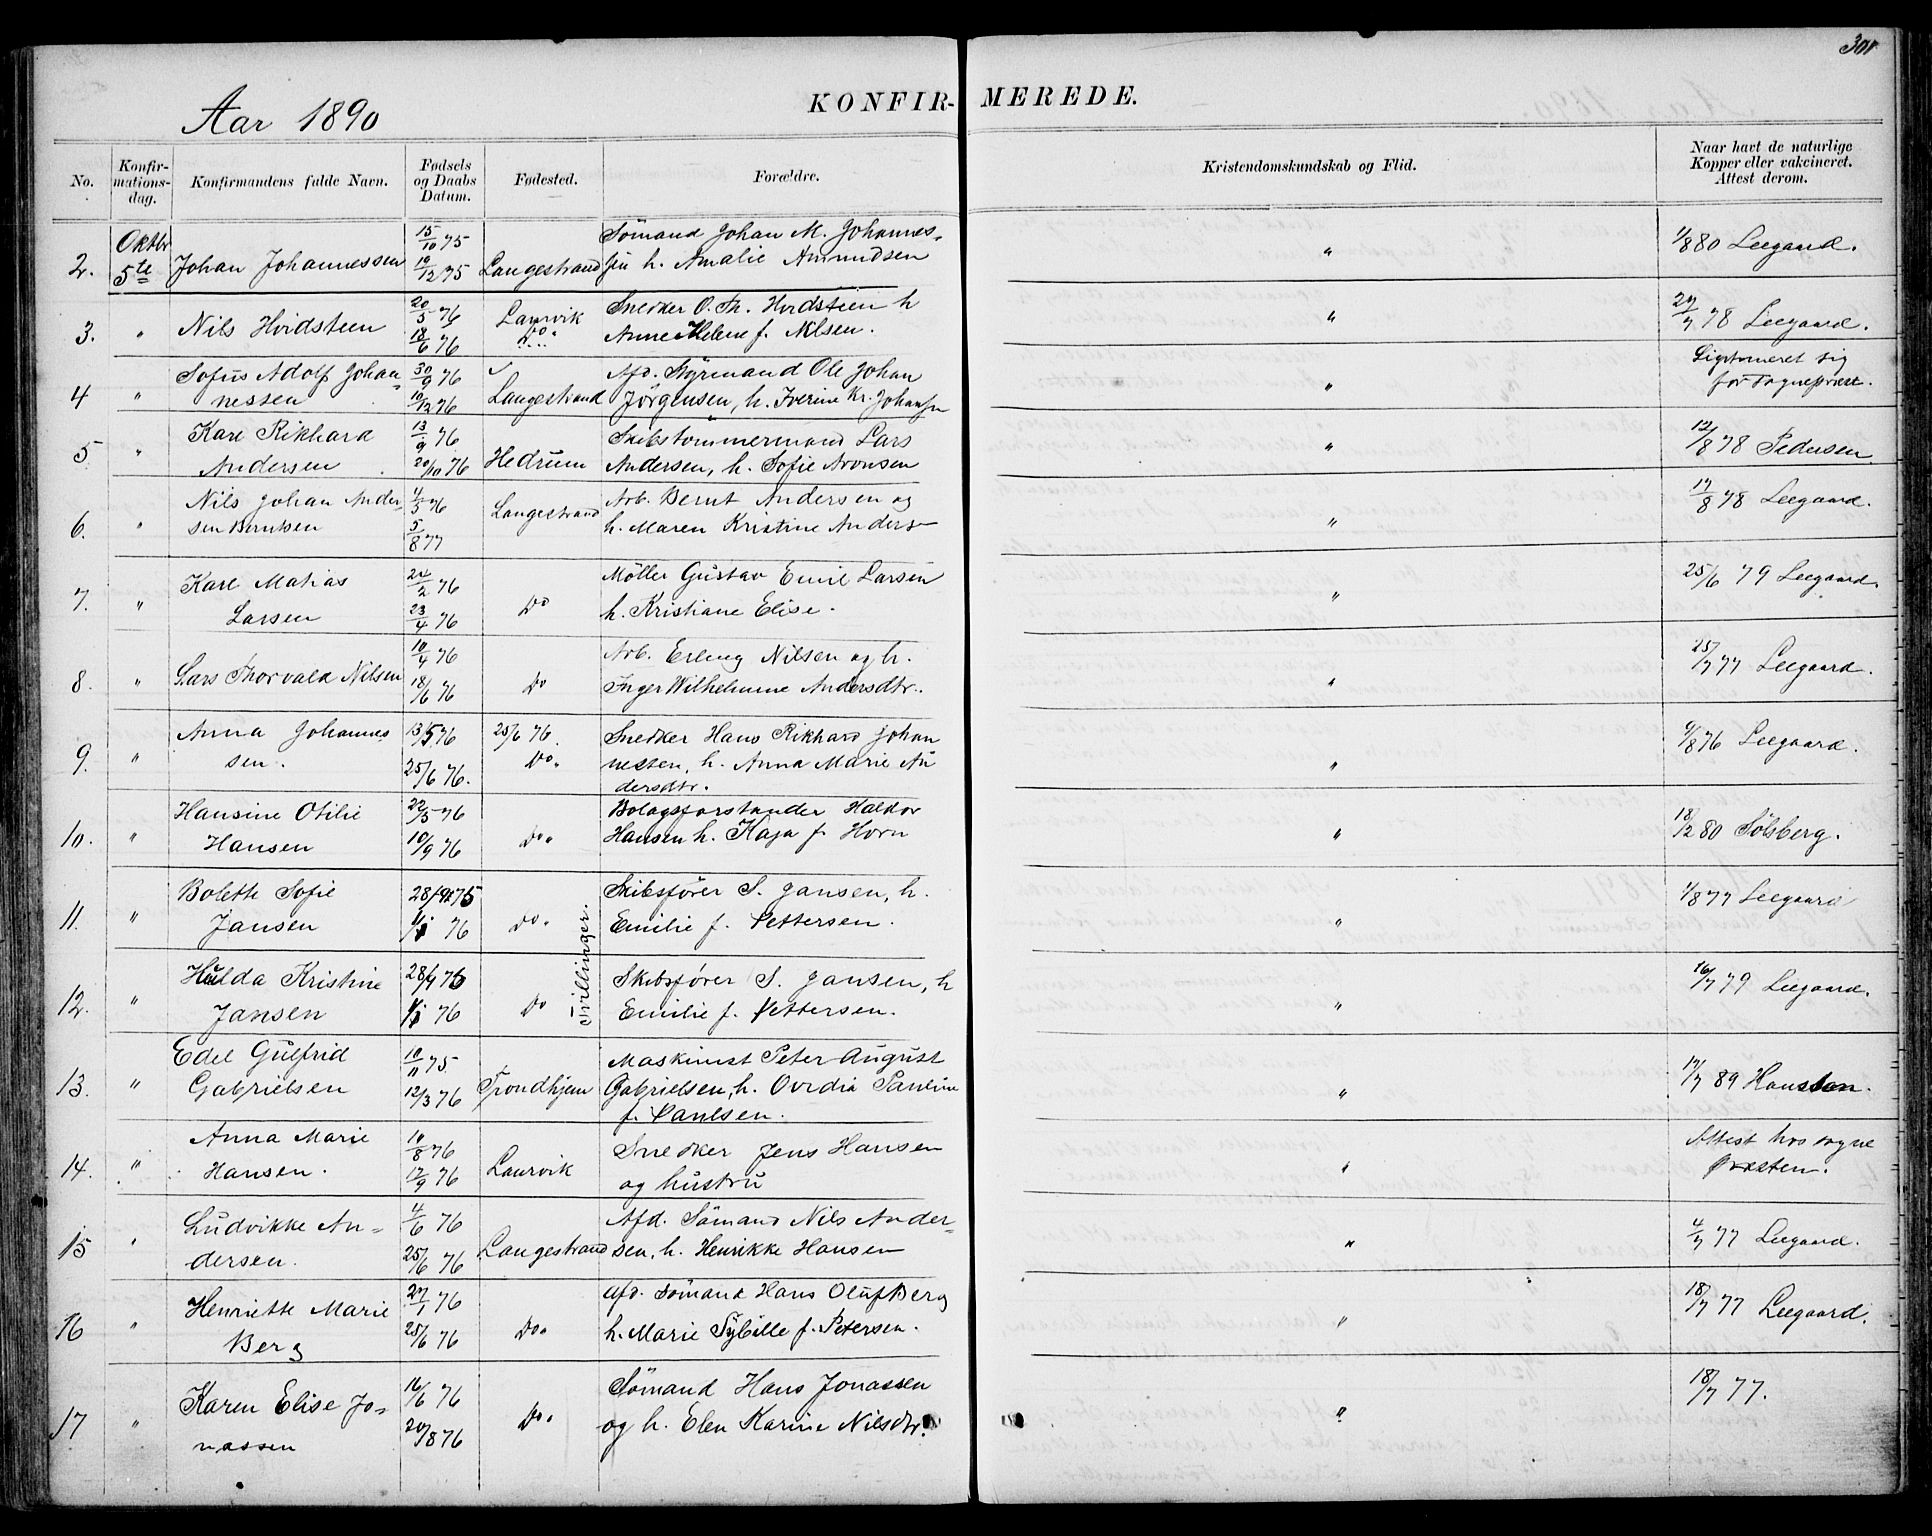 301
Aar 1890
KONFIR-MEREDE.
No.
Konfir-
mations-
dag.
Konfirmandens fulde Navn.
Fødsels
og Daabs
Datum.
Fødested.
Forældre.
Kristendomskundskab og Flid.
Naar havt de naturlige
Kopper eller vakcineret.
Attest derom.
2. Oktbr 5te Johan Johannessen 15/10 75 19/12 75 Langestrand Sömand Johan M. Johannes- h. Amalie Amundsen " 1/8 80 Leegaard.
3. " Nils Hvidsteen 20/5 76 18/6 76 Laurvik Do. Snedker O. Th. Hvidsteen h Anne Helene f. Nilsen. " 78 Leegaard.
4 " Sofus Adolf Johan-
nessen 30/9 76 10/12 76 Langestrand Afd. Styrmand Ole Johan
Jörgensen, h. Iverine Kr. "
for Sognepræst.
5 " Karl Rikhard
Andersen 13/9 76 20/10 76 Hedrum Skibstömmermand Lars
Andersen, h. Sofie Aronsen " 12/8 78 Pedersen
6. " Nils Johan Ander-
sen Berntsen 4/5 76 5/8 77 Langestrand Arb. Bernt Andersen og
h. Maren Kristine Anders " 17/8 78 Leegaard.
7. " Karl Matias
Larsen 24/2 76 23/4 76 Do Möller Gustav Emil Larsen
h. Kristiane Elise. " 25/6 79 Leegaard.
8. " Lars Thorvald Nilsen 10/4 76 18/6 76 Do Arb. Erling Nilsen og h.
Inger Wilhelmine Andersdtr. " 25/7 77 Leegaard.
9. " Anna Johannes
sen. 13/5 76 25/6 76. 25/6 76. Do. Snedker Hans Rikhard Johan
nessen, h. Anna Marie An
dersdtr. " 76 Leegaard.
10. " Hansine Otilie
Hansen 22/5 76 10/9 76 Do. Bolagsforstander Haldor
Hansen h. Kaja f. Horn " 18/2 80 Sölsberg.
11. " Bolette Sofie
Jansen 28/9 75 1/1 76 Do. Tvillinger. Skibsförer S. Jansen, h.
Emilie f. Pettersen. " 1/8 77 Leegaard
12. " Hulda Kristine
Jansen 28/9 75 1/1 76 Do Skibsförer S. Jansen, h
Emilie f. Pettersen. " 16/7 79 Leegaard.
13. " Edel Gulfrid
Gabrielsen 10/11 75 12/3 76 Trondhjem Maskinist Peter August
Gabrielsen, h. Ovidia Pauline
f. Paulsen. " 17/7 89
14. " Anna Marie
Hansen. 10/8 76 17/9 76 Laurvik Snedker Jens Hansen
og hustru " Attest hos sogne
præsten.
15 " Ludvikke An-
dersen. 4/6 76 25/6 76 Langestrand Afd. Sömand Nils Ander-
sen, h. Henrikke Hansen " 4/7 77 Leegaard.
16 " Henriette Marie
Berg 27/1 76 25/6 76 Do. Afd. Sömand Hans Oluf Berg
h. Marie Sybille f. Petersen. " 18/7 77 Leegaard.
17 " Karen Elise Jo-
nassen 16/6 76 20/8 76 Do. Sömand Hans Jonassen
og h. Elen Karine Nilsdtr. " 18/7 77.